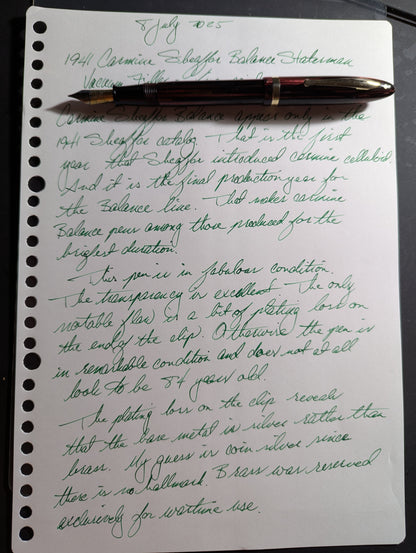 8 July 2025
1941 Carmine Sheaffer Balance Statesman
Vacuum Filler
Carmine Sheaffer Balance appear only in the
1941 Sheaffer catalog. That is the first
year that Sheaffer introduced carmine celluloid.
And it is the final production year for
the Balance line. That makes carmine
Balance pens among those produced for the
briefest duration.
This pen is in fabulous condition.
The transparency is excellent. The only
notable flaw is a bit of plating loss on
the end of the clip. Otherwise the pen is
in remarkable condition and does not at all
look to be 84 years old.
The plating loss on the clip reveals
that the base metal is silver rather than
brass. My guess is coin silver since
there is no hallmark. Brass was reserved
exclusively for wartime use.